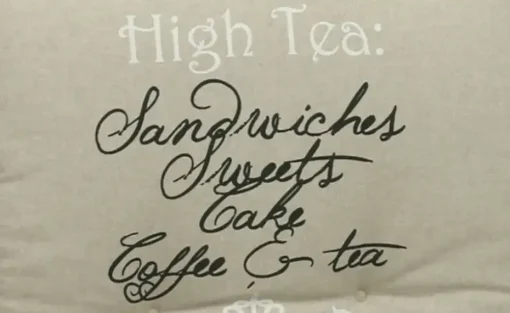 High Tea:
Sandwiches
Sweets
Cake
Coffee & tea